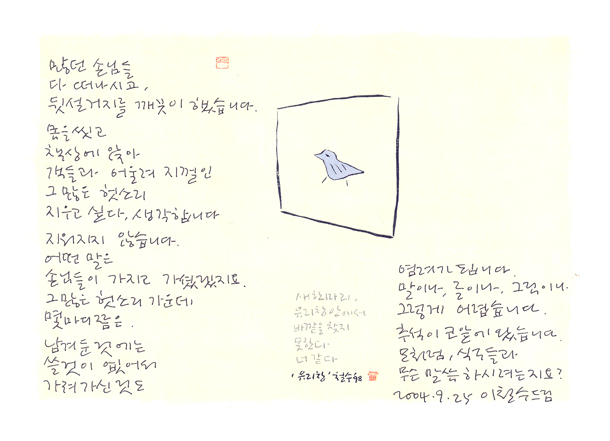 많던 손님들
다 떠나시고,
뒷설거지를 깨끗이 했습니다.
몸을 씻고
책상에 앉아
객들과 어울려 지껄인
그 많은 헛소리
지우고 싶다, 생각합니다
지워지지 않습니다.
어떤 말은
손님들이 가지고 가셨겠지요.
그 많은 헛소리 가운데
몇마디쯤은.
남겨둔 것에는
쓸것이 없어도
가려가신 것도
염려가 됩니다.
말이나, 글이나, 그림이나
그렇게 어렵습니다.
추석이 코앞에 왔습니다.
모처럼, 식구들과
무슨 말씀 하시려는지요?
2004.9.25 이철수드림
새 한마리,
유리창 안에서
바깥을 찾지
못한다
너 같다
'유리창' 철수98